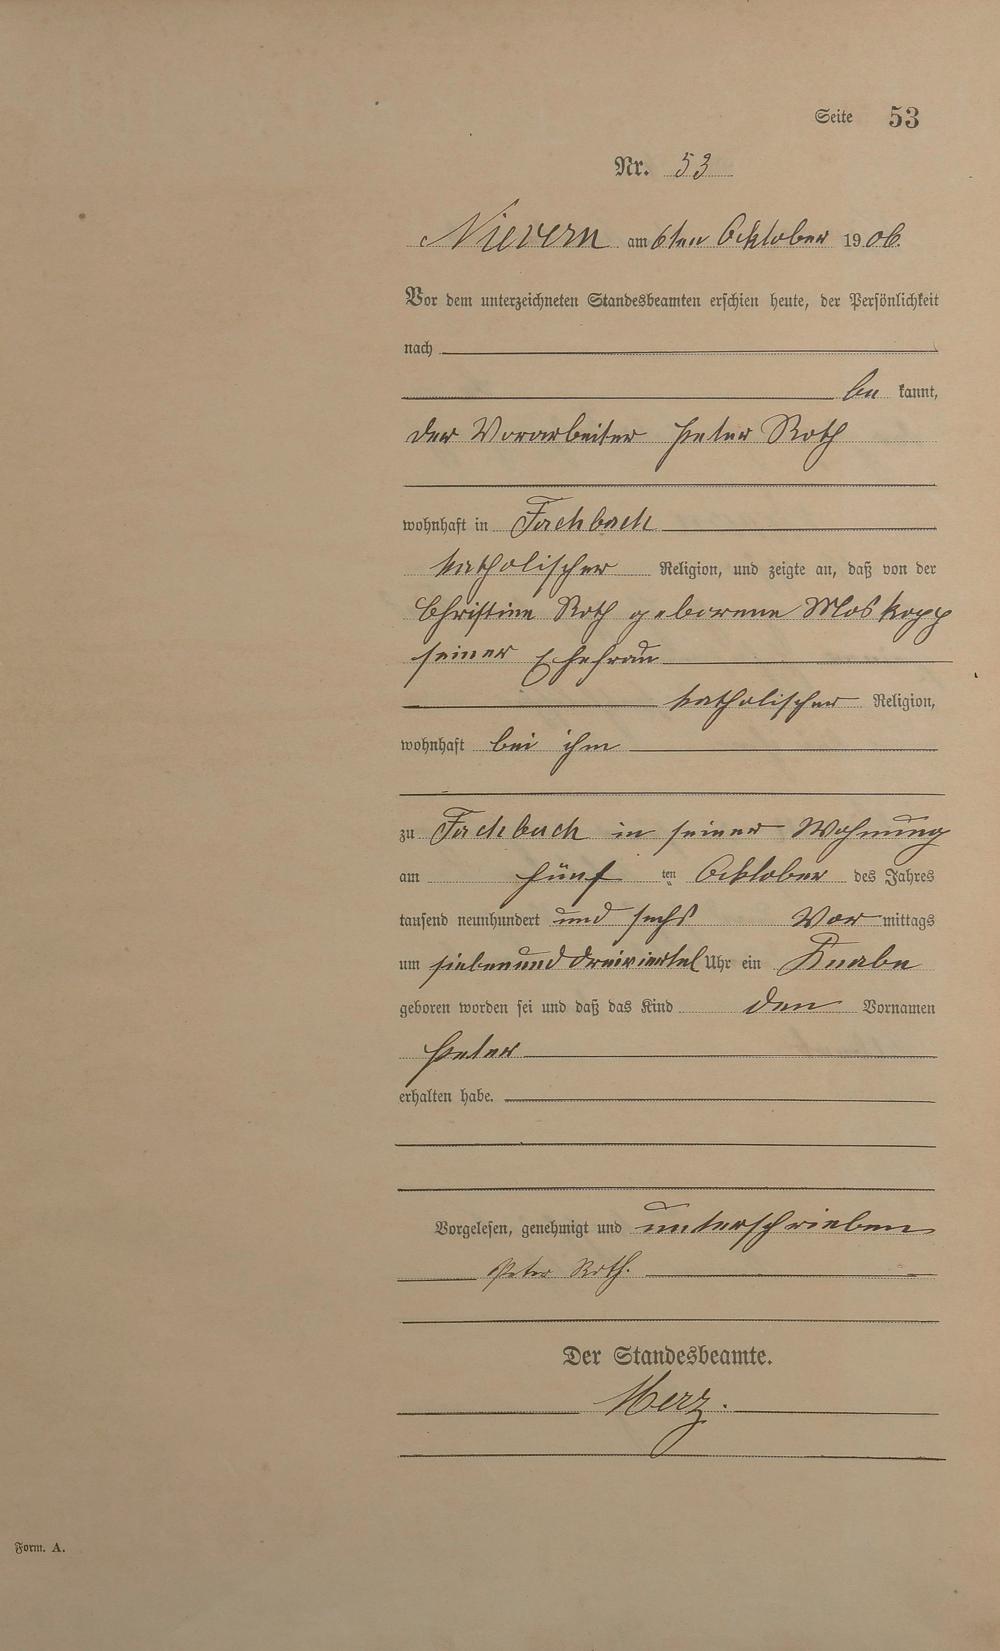 Seite 53
Nr. 53
Nievern am 6ten Ocktober 1906.
Vor dem unterzeichneten Standesbeamten erschien heute, der Persönlichkeit
nach
be kannt,
der Vorarbeiter Peter Roth
wohnhaft in Fachbach
katholischer Religion, und zeigte an, daß von der
Christine Roth geborene Moskopp
seiner Ehefrau
katholischer Religion,
wohnhaft bei ihm
zu Fachbach in seiner Wohnung
am fünf ten Ocktober des Jahres
tausend neunhundert und sechs Vor mittags
um siebenunddreiviertel Uhr ein Knabe
geboren worden sei und daß das Kind den Vornamen
Peter
erhalten habe.
Vorgelesen, genehmigt und unterschrieben
Peter Roth.
Der Standesbeamte.
Merz.
Form. A.